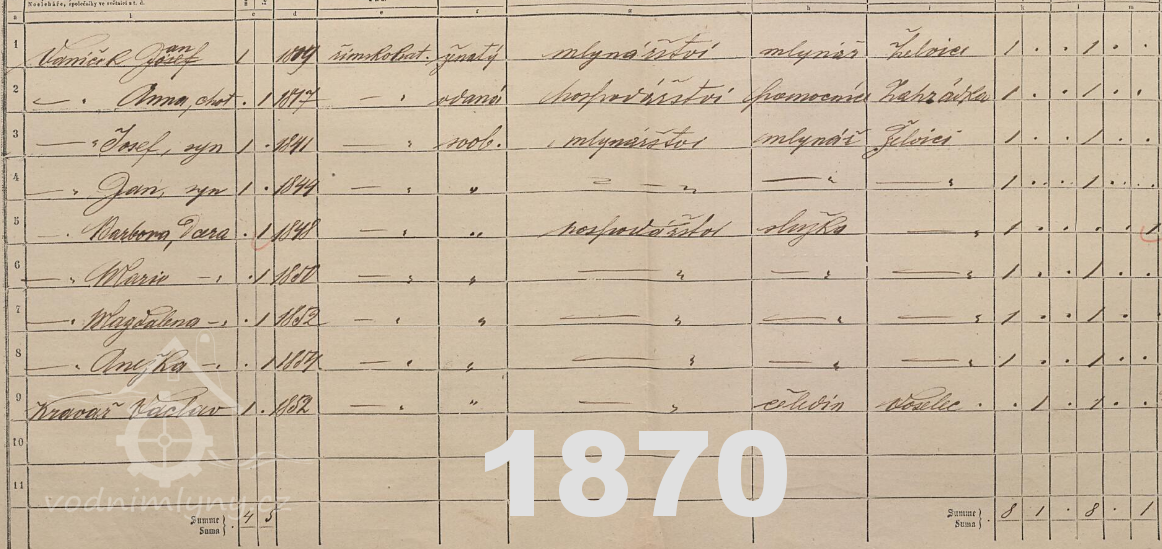 Nocleháře, společníky ve světnici a t. d.
a 1 c d e f g h i k l m
1 Vaníček Jan Josef 1 1809 římskokat. ženatý mlynářství mlynář Želvice 1 . . 1 . .
2 — " Anna, chot . 1 1817 — " vdaná hospodářství Zahrádka 1 . . 1 . .
3 — " Josef, syn 1 . 1841 — " svob. mlynářství mlynář Želvici 1 . . 1 . .
4 — " Jan, syn 1 . 1844 — " " — " — " — " 1 . . . 1 . . . .
5 — " Barbora, dcera . 1 1848 — " " hospodářství služka — " 1 . . . . 1
6 — " Marie — " . 1 1850 — " " — " — " — " 1 . . 1 . .
7 — " Magdalena — " . 1 1852 — " " — " — " — " 1 . . 1 . .
8 — " Anežka — " . 1 1857 — " " — " — " — " 1 . . 1 . .
9 Kravař Václav 1 . 1852 — " " — " čeledín Voselec . . 1 . 1 . .
10
11
vodnimlyny.cz
1870
Summe Suma } . 4 5 Summe Suma } . 8 1 . 8 . 1